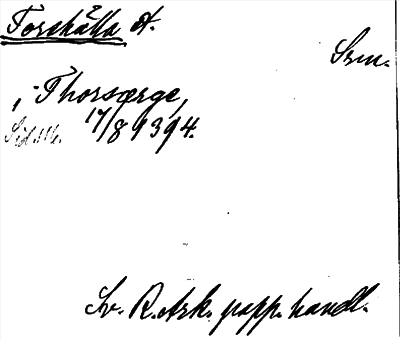 Torshälla st.
Srm.
, Thorsærge,
17/8 1394.
Sv. R. Ark. papp. handl.